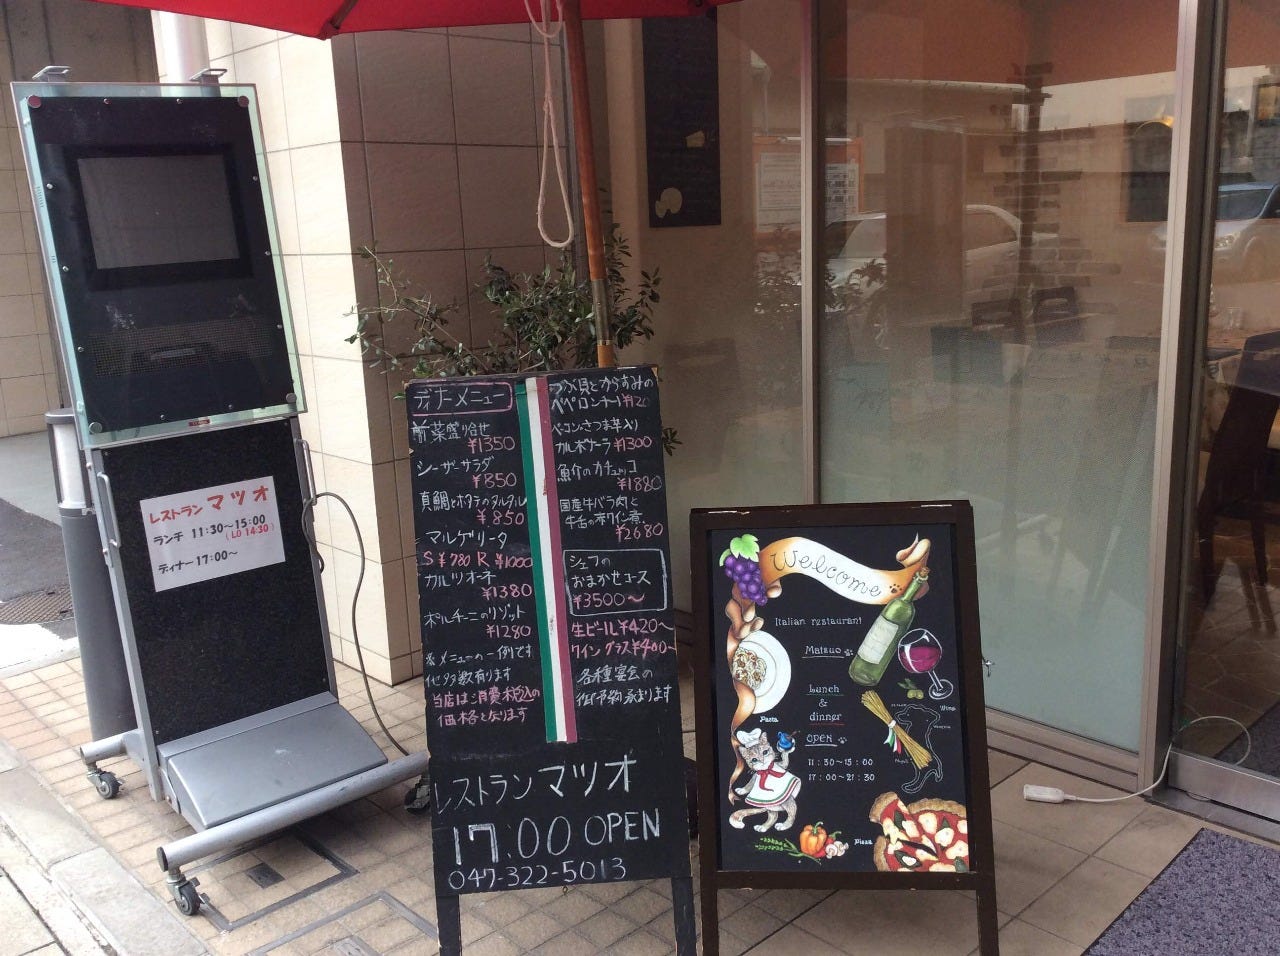 レストラン マツオ
ランチ 11:30～15:00
(LO 14:30)
ディナー 17:00～
ディナーメニュー
前菜盛り合せ
¥1350
シーザーサラダ
¥850
真鯛とホタテのタルタル
¥850
マルゲリータ
S ¥780 R ¥1000
カルツォーネ
¥1380
ポルチーニのリゾット
¥1280
※メニューの一例です
他多数有ります
当店は消費税込の
価格となります
つぶ貝とからすみの
ペペロンチーノ
ベーコンさつま芋入り
カルボナーラ ¥1300
魚介のカチュッコ
¥1880
国産牛バラ肉と
牛舌の赤ワイン煮
¥2680
シェフの
おまかせコース
¥3500～
生ビール ¥420～
ワイン グラス¥400～
各種宴会の
御予約承まります
レストラン マツオ
17:00 OPEN
047-322-5013
Welcome
Italian restaurant
Matsuo
Lunch
&
dinner
OPEN
11:30~15:00
17:00~21:30
Pasta
Wine
Pizza